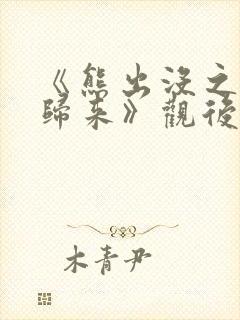 《熊出没之
歸来》觀後
木青尹